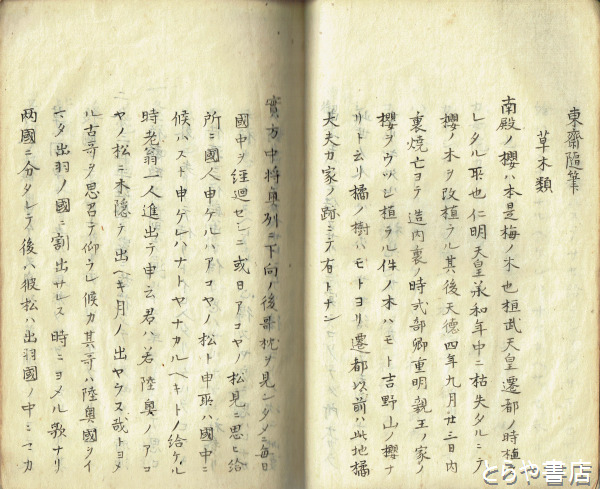 東齋隨筆
草木類
南殿ノ櫻ハ本是梅ノ木也桓武天皇遷都ノ時植ラ
レタル取也仁明天皇承和年中ニ枯失タルニテ
櫻ノ木ヲ改植ラル其後天德四年九月廿三日内
裏焼亡ヨテ造内裏ノ時式部卿重明親王ノ家ノ
櫻ヲウツシ植ラル件ノ木ハモト吉野山ノ櫻ナ
リト云リ橘ノ樹ハモトヨリ遷都以前ハ此地橘
大夫カ家ノ跡ニテ有トナン
實方中將奥列ニ下向ノ後哥枕ヲ見ンタメニ毎日
國中ヲ経迴セシニ或日アコヤノ松見ニ思ヒ給
所ニ國人申ケルハアコヤノ松ト申取ハ國中ニ
候ハスト申ケレハナトヤナカルヘキトノ給ケル
時老翁一人進出テ申云君ハ若陸奥ノアコ
ヤノ松ニ木隠テ出ヘキ月ノ出ヤラヌ哉トヨメ
ル古哥ヲ思召テ仰ラレ候カ其哥ハ陸奥國ヲイ
マタ出羽ノ國ニ割出サレス時ニヨメル歌ナリ
两國ニ分タレテ後ハ彼松ハ出羽國ノ中ニマカ
とらや書店